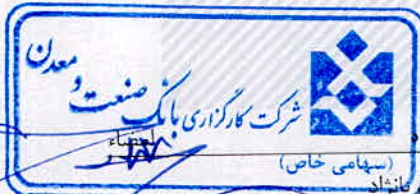 شرکت کارگزاری بانک صنعت و معدن
(سهامی خاص)
امضاء